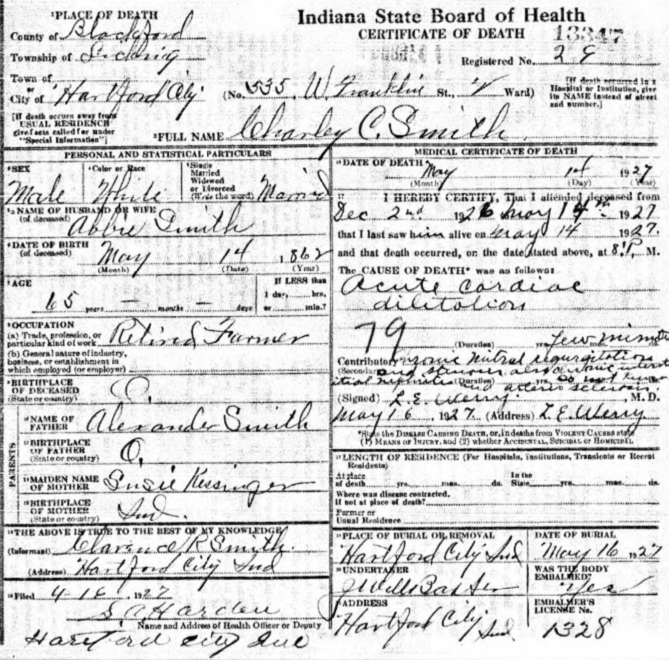 Indiana State Board of Health
CERTIFICATE OF DEATH
13347
Registered No. 28
¹PLACE OF DEATH
County of Blackford
Township of Licking
Town of
or
City of Hartford City
(No. 535 W Franklin St., Ward)
[If death occurred in a Hospital or Institution, give its NAME instead of street and number.]
[If death occurs away from USUAL RESIDENCE give facts called for under "Special Information"]
²FULL NAME Charley C. Smith
PERSONAL AND STATISTICAL PARTICULARS
³SEX Male
⁴Color or Race White
⁵Single Married Widowed or Divorced (Write the word) Married
NAME OF HUSBAND OR WIFE (of deceased) Abbie Smith
DATE OF BIRTH May 14 1862
(Month) (Date) (Year)
AGE
65 years — months — days
If LESS than 1 day, hrs. or min.?
OCCUPATION
(a) Trade, profession, or particular kind of work Retired Farmer
(b) General nature of industry, business, or establishment in which employed (or employer)
BIRTHPLACE OF DECEASED (State or country) O.
PARENTS
NAME OF FATHER Alexander Smith
BIRTHPLACE OF FATHER (State or country) O.
MAIDEN NAME OF MOTHER Susie Kissinger
BIRTHPLACE OF MOTHER (State or country) Ind.
THE ABOVE IS TRUE TO THE BEST OF MY KNOWLEDGE
(Informant) Clarence R Smith
(Address) Hartford City Ind
Filed 1927
Name and Address of Health Officer or Deputy
Hartford City Ind
MEDICAL CERTIFICATE OF DEATH
DATE OF DEATH May 14 1927
(Month) (Day) (Year)
I HEREBY CERTIFY, That I attended deceased from
Dec 2nd 1926 May 14 1927
that I last saw him alive on May 14 1927.
and that death occurred, on the date stated above, at 8 P. M.
The CAUSE OF DEATH* was as follows:
Acute cardiac
dilitation
79
(Duration) Few minutes
Contributory Chronic Mitral regurgitation
(Secondary) and stenosis also chronic interst
itial nephritis and arterio sclerosis
(Signed) L. E. M. D.
May 16 1927 (Address)
*State the DISEASE CAUSING DEATH, or, in deaths from VIOLENT CAUSES state (1) MEANS OF INJURY, and (2) whether ACCIDENTAL, SUICIDAL or HOMICIDAL
LENGTH OF RESIDENCE (For Hospitals, Institutions, Transients or Recent Residents)
At place of death yrs. mos. ds. In the State yrs. mos. ds.
Where was disease contracted, if not at place of death?
Former or Usual Residence
PLACE OF BURIAL OR REMOVAL
Hartford City Ind
DATE OF BURIAL
May 16 1927
UNDERTAKER
WAS THE BODY EMBALMED?
Yes
ADDRESS
Hartford City Ind
EMBALMER'S LICENSE No.
1328